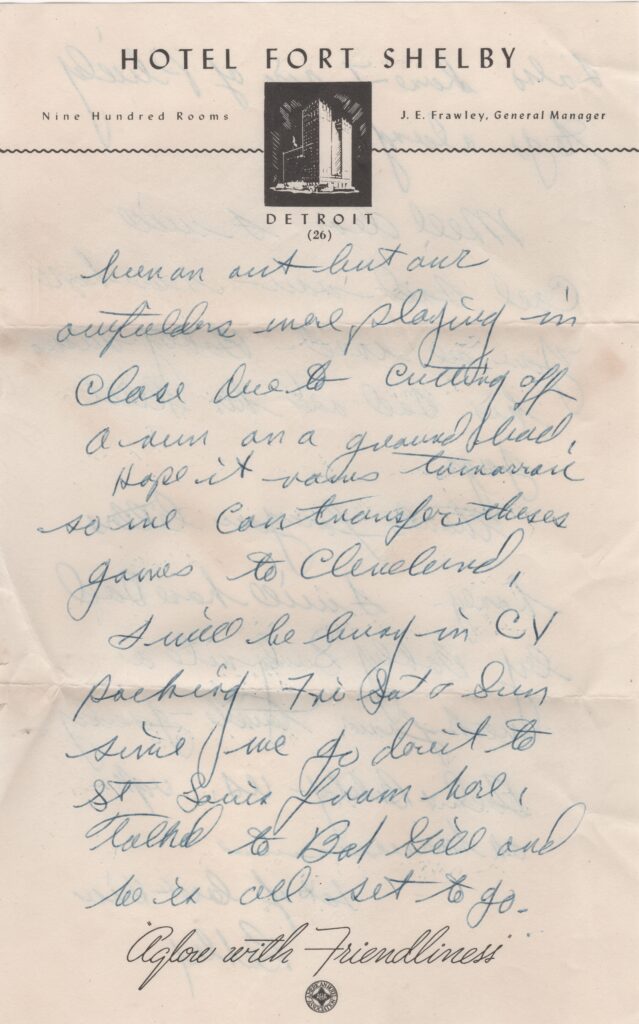 HOTEL FORT SHELBY
Nine Hundred Rooms
J. E. Frawley, General Manager
DETROIT
(26)
been an out but our
outfielders were playing in
close due to cutting off
a run on a ground ball,
Hope it rains tomorrow
so we can transfer theses
games to Cleveland,
I will be busy in CV
packing Fri Sat & Sun
since we go direit to
St Louis from here,
Talked to Bob Gill and
he is all set to go.
"Aglow with Friendliness"